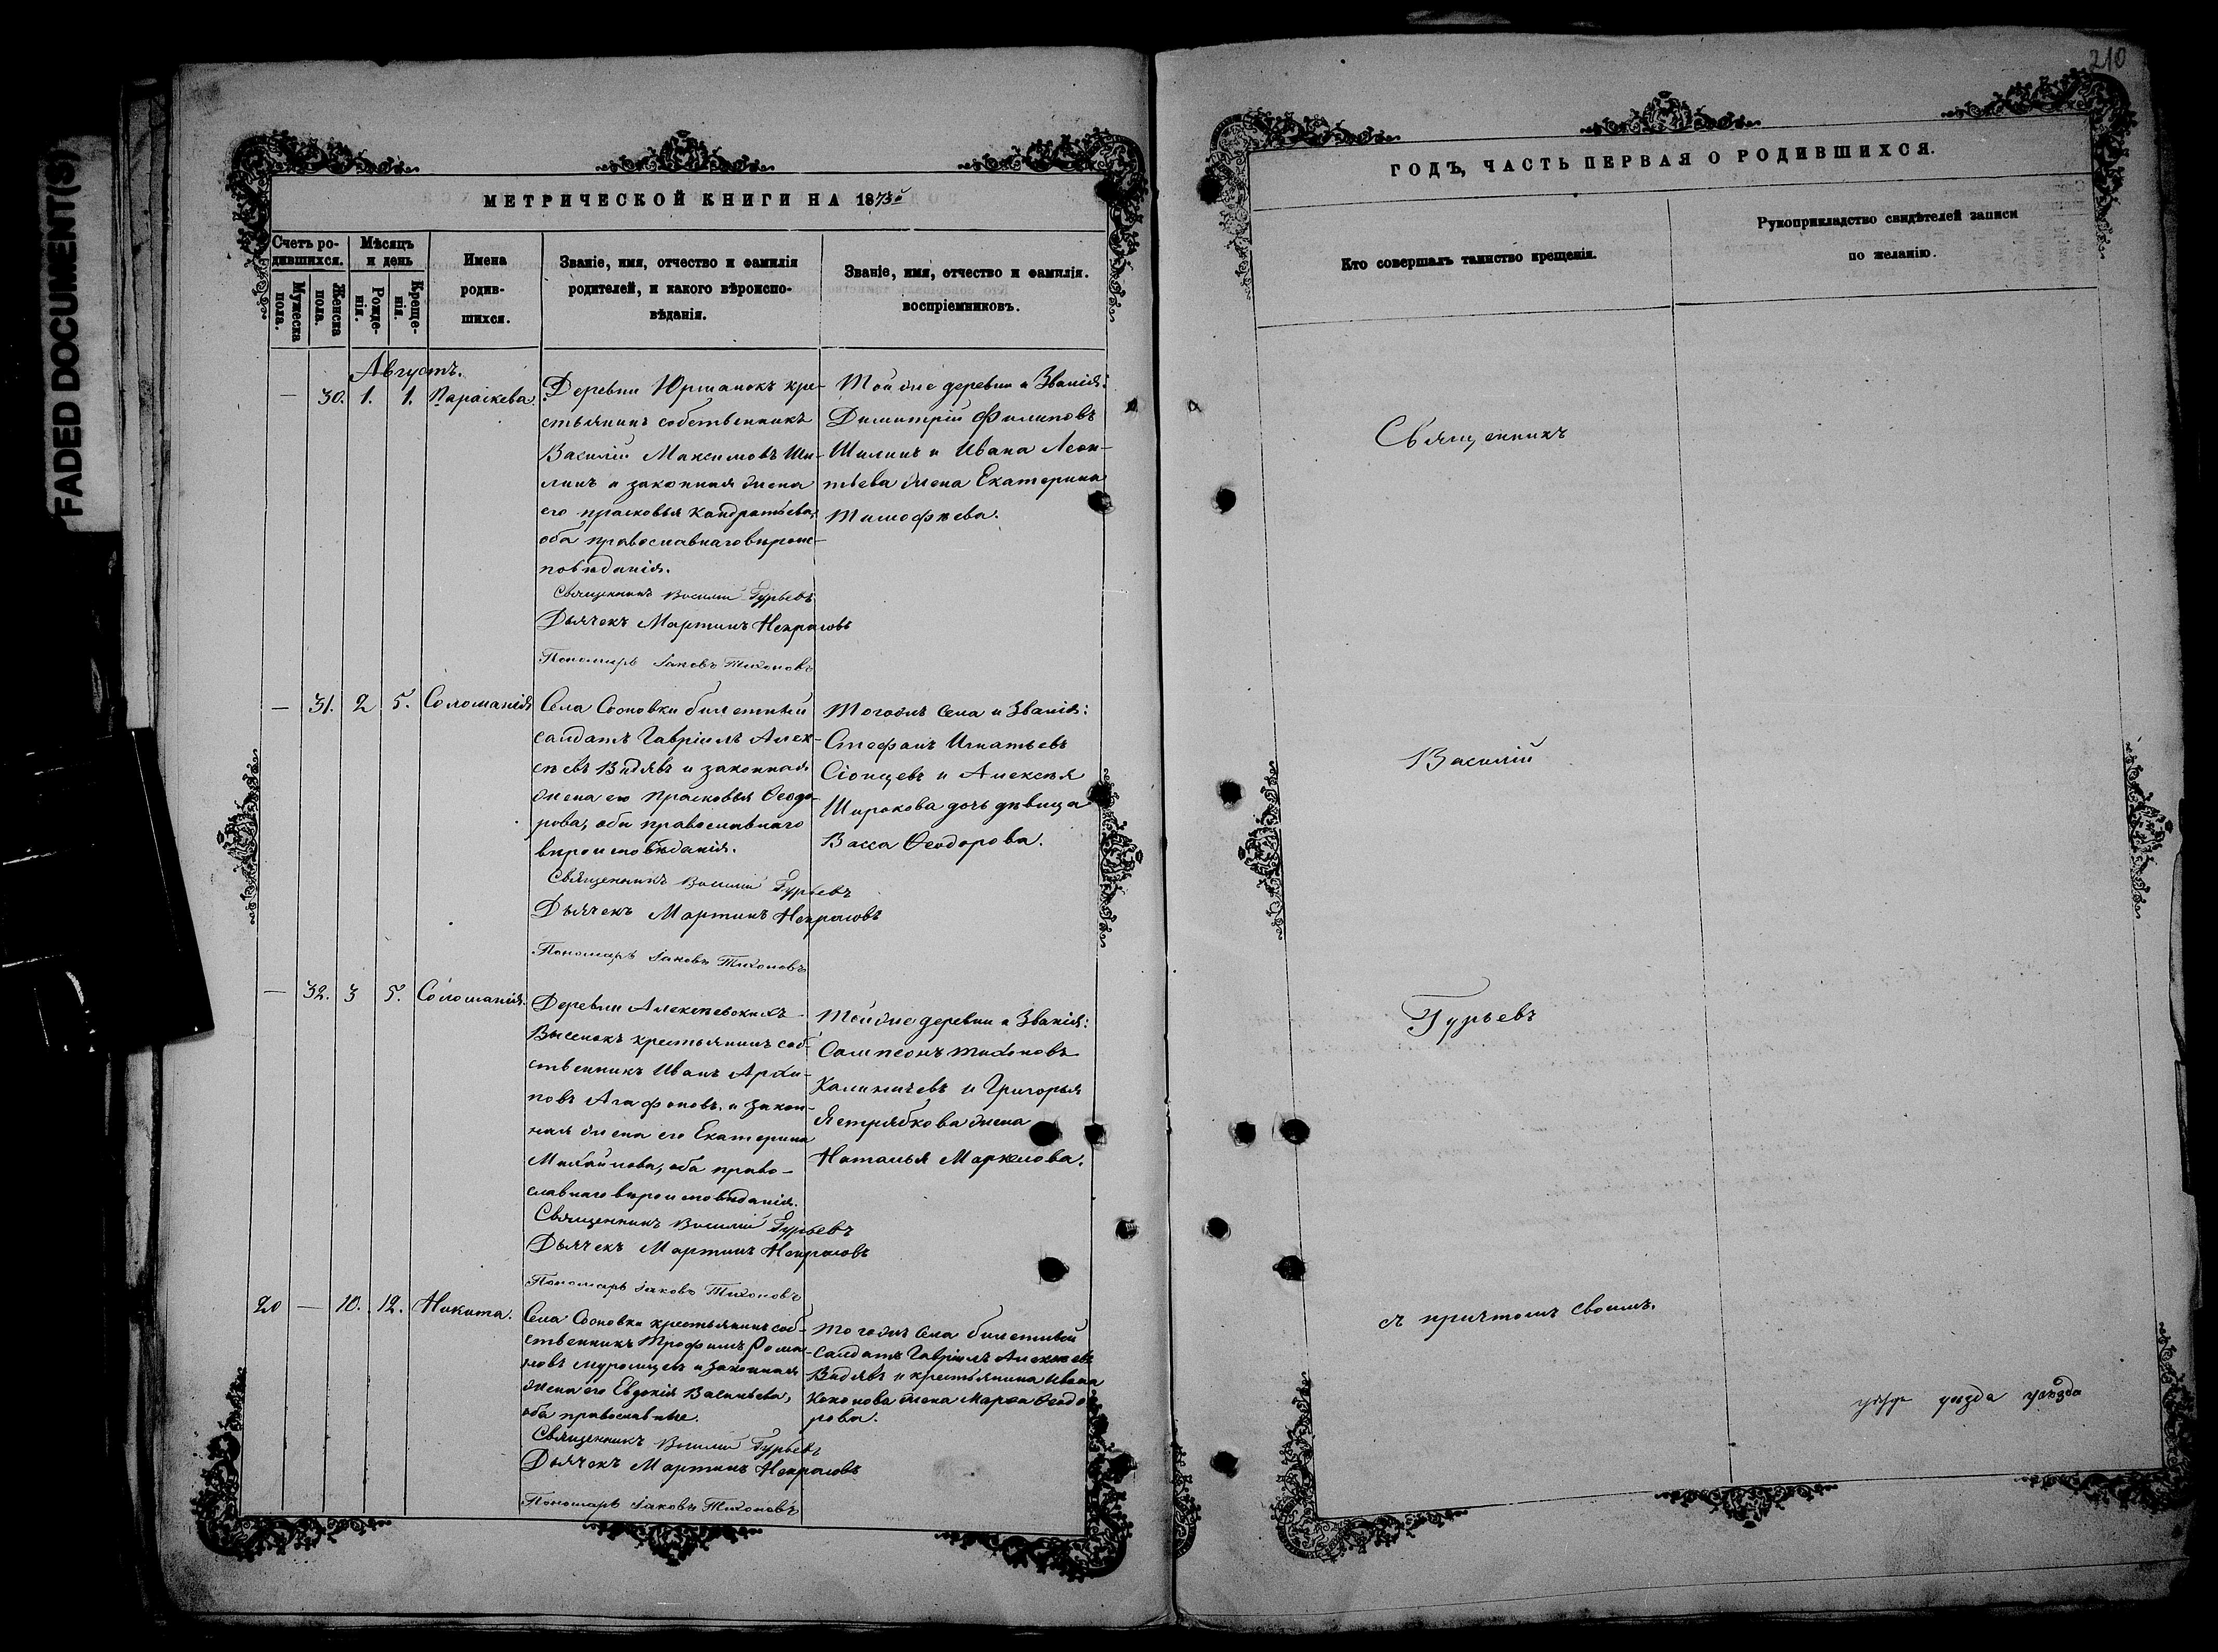 FADED DOCUMENT(S)
210
МЕТРИЧЕСКОЙ КНИГИ НА 1873й
Счетъ ро-
дившихся.
Мужеска
пола.
Женска
пола.
Мѣсяцъ
и день
Рожде-
нія.
Креще-
нія.
Имена
родив-
шихся.
Званіе, имя, отчество и фамилія
родителей, и какого вѣроиспо-
вѣданія.
Званіе, имя, отчество и фамилія.
воспріемниковъ.
Августъ.
— 30. 1. 1. Параскева.
Деревни Юрманокъ кре-
стьянинъ собственникъ
Василій Максимовъ Ши-
линъ и законная жена
его Прасковья Кандратьева,
оба православнаго вѣроис-
повѣданія.
Священникъ Василій Гурьевъ
Дьячекъ Мартинъ Некрасовъ
Пономарь Іаковъ Тихоновъ
Той же деревни и Званія:
Димитрій Филиповъ
Шилинъ и Ивана Леон-
тьева жена Екатерина
Тимофѣева.
— 31. 2 5. Соломанія
Села Сосновки билетный
салдатъ Гавріилъ Алек-
сѣевъ Видявъ и законная
жена его Прасковья Ѳеодо-
рова, оба православнаго
вѣроисповѣданія.
Священникъ Василій Гурьевъ
Дьячекъ Мартинъ Некрасовъ
Пономарь Іаковъ Тихоновъ
Тогоже Села и Званія:
Стефанъ Игнатьевъ
Сіонцевъ и Алексѣя
Широкова дочь дѣвица
Васса Ѳеодорова.
— 32. 3 5. Соломанія.
Деревни Алексѣевскихъ
Выселокъ крестьянинъ соб-
ственникъ Иванъ Архи-
повъ Агафоновъ, и закон-
ная жена его Екатерина
Михайлова, оба право-
славнаго вѣроисповѣданія.
Священникъ Василій Гурьевъ
Дьячекъ Мартинъ Некрасовъ
Пономарь Іаковъ Тихоновъ
Той же деревни и Званія:
Сампсонъ Тихоновъ
Калиничевъ и Григорья
Ястрябкова жена
Наталья Маркелова.
20 — 10. 12. Никита.
Села Сосновки крестьянинъ соб-
ственникъ Трофимъ Рома-
новъ Муромцевъ и законная
жена его Евдокія Васильева,
оба православные.
Священникъ Василій Гурьевъ
Дьячекъ Мартинъ Некрасовъ
Пономарь Іаковъ Тихоновъ
Тогоже Села билетный
салдатъ Гавріилъ Алексѣевъ
Видявъ и крестьянина Ивана
Коконова жена Марѳа Ѳеодо
рова.
ГОДЪ, ЧАСТЬ ПЕРВАЯ О РОДИВШИХСЯ.
Кто совершалъ таинство крещенія.
Рукоприкладство свидѣтелей записи
по желанію.
Священникъ
Василій
Гурьевъ
съ причтомъ своимъ.
уѣзда уѣзда